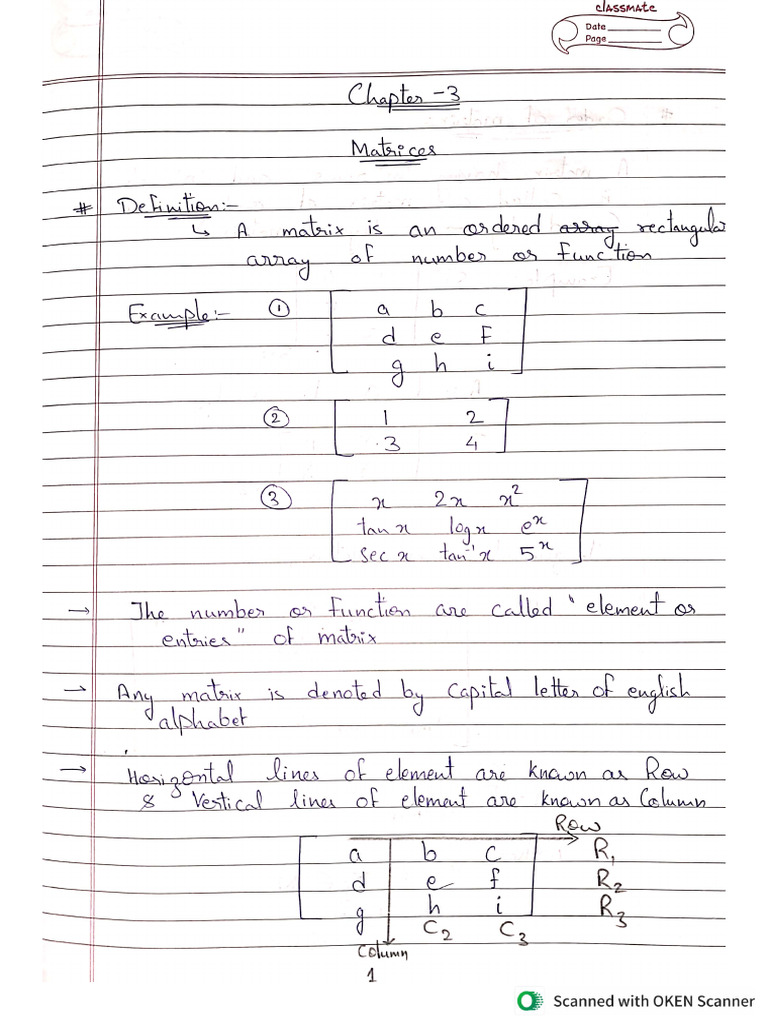 classmate
Date
Page
Chapter -3
Matrices
# Definition:-
↳ A matrix is an ordered array rectangular
array of number or function
Example:- ① a b c
d e f
g h i
② 1 2
3 4
③ x 2x x²
tan x log x eˣ
sec x tan⁻¹x 5ˣ
→ The number or function are called "element or
entries" of matrix
→ Any matrix is denoted by Capital letter of english
alphabet
→ Horizontal lines of element are known as Row
& Vertical lines of element are known as Column
Row
a b c R₁
d e f R₂
g h i R₃
C₂ C₃
Column
1
Scanned with OKEN Scanner